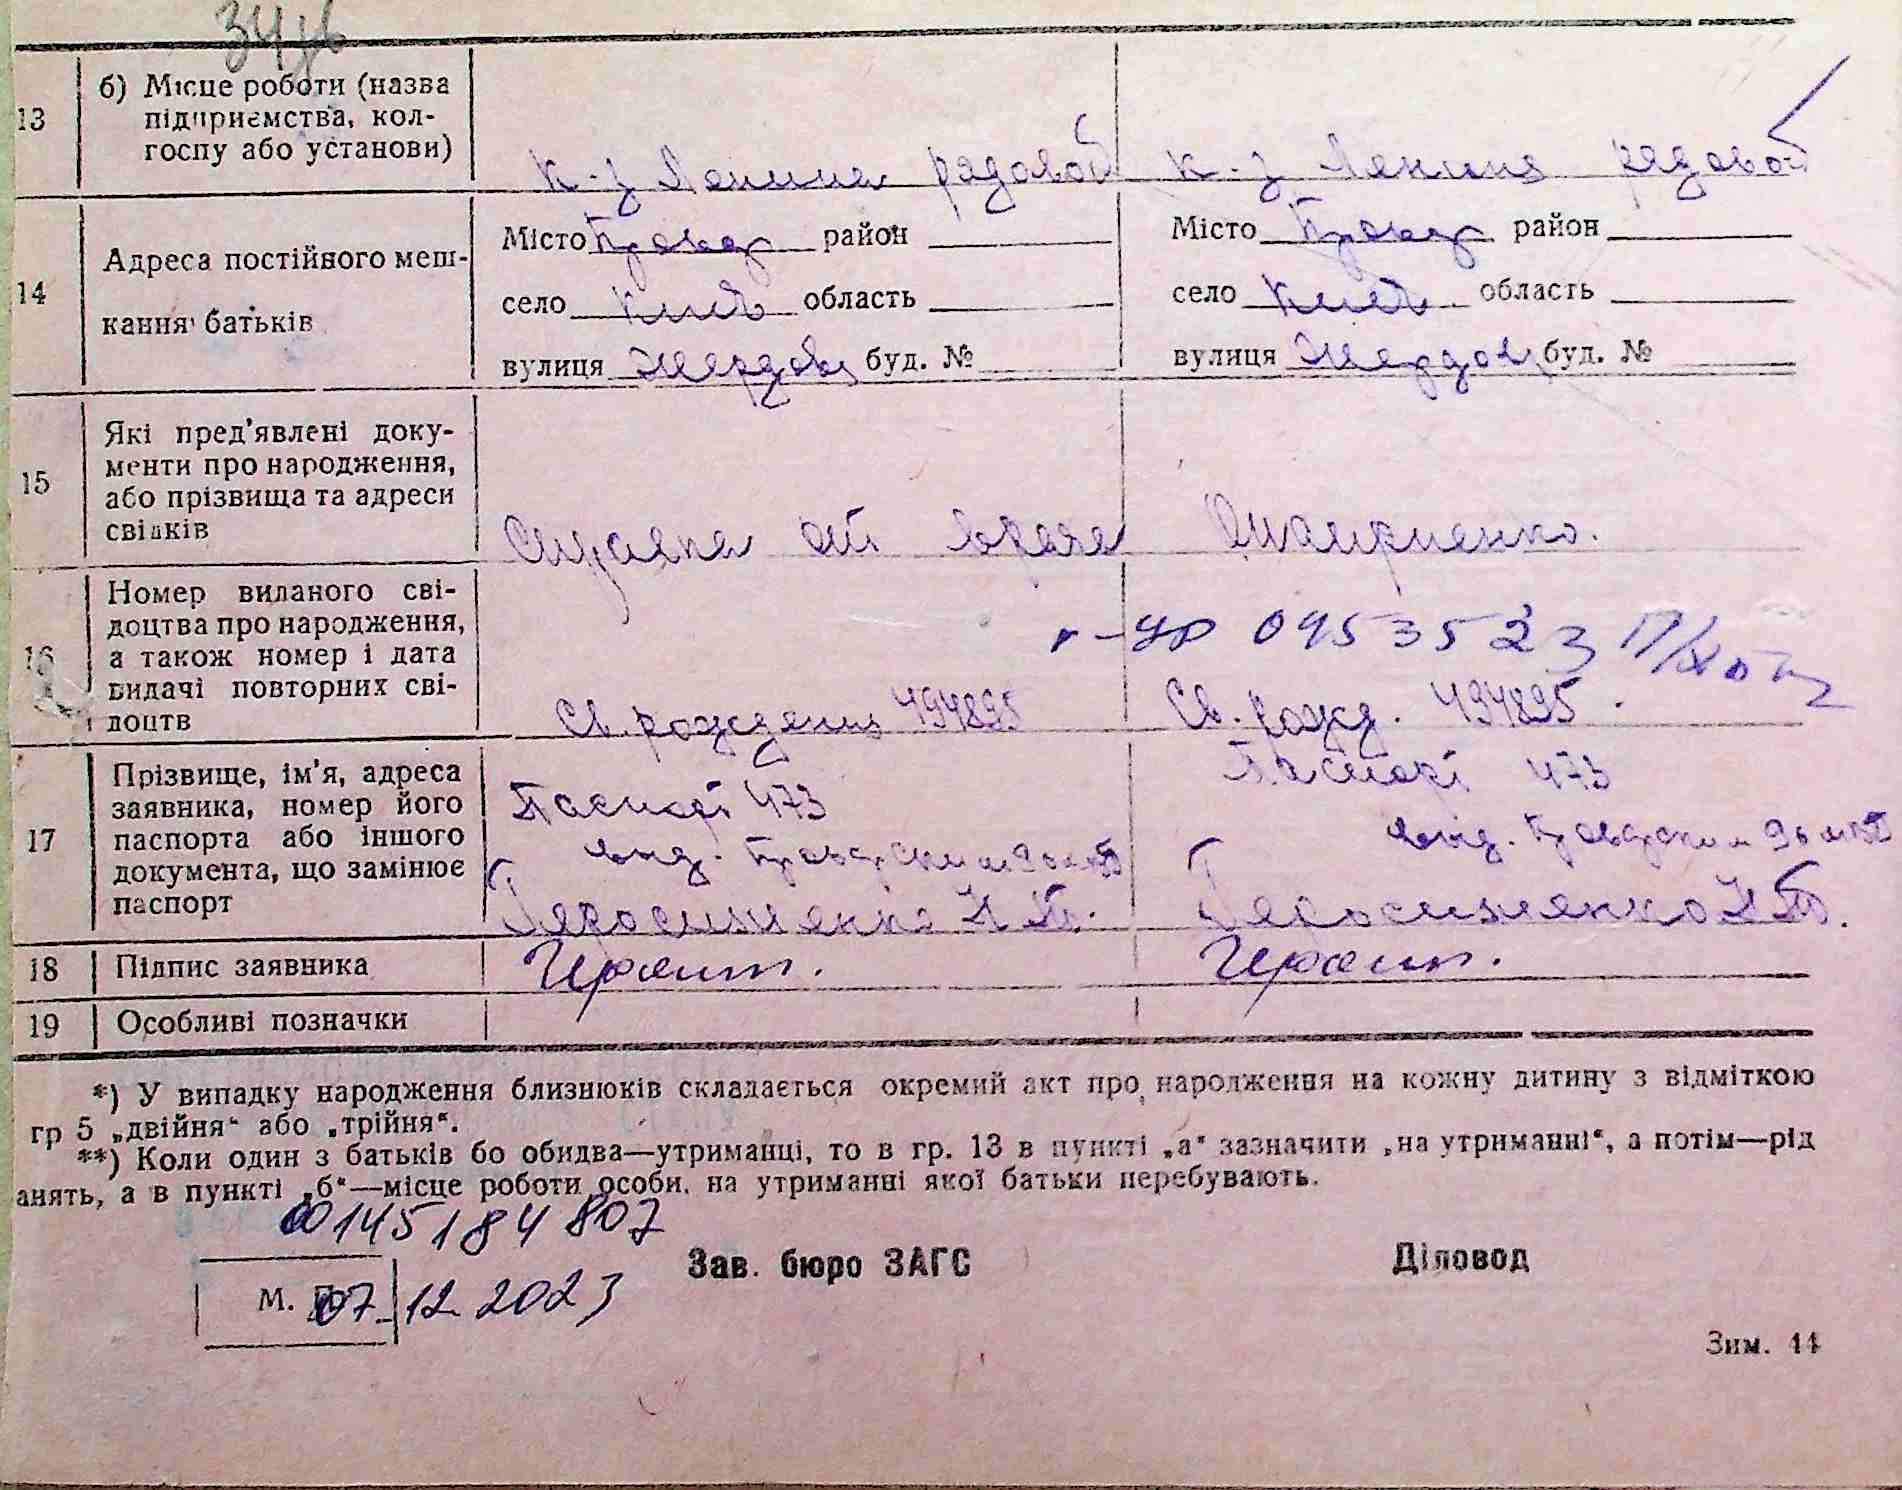 13 б) Місце роботи (назва
підприємства, кол-
госпу або установи)
к-з Ленина рядовой к-з Ленина рядовой
Місто Бровар район Місто Бровар район
14 Адреса постійного меш-
кання батьків
село Киев область село Киев область
вулиця Жердова буд. № вулиця Жердов буд. №
15 Які пред'явлені доку-
менти про народження,
або прізвища та адреси
свідків
Справка от врача
16 Номер виданого сві-
доцтва про народження,
а також номер і дата
видачі повторних сві-
доцтв
0953523
Св. рождения 494895 Св. рожд. 494895
17 Прізвище, ім'я, адреса
заявника, номер його
паспорта або іншого
документа, що замінює
паспорт
Паспорт 473 Паспорт 473
выд. Броварским выд. Броварским
Герасименко Н Т. Герасименко Н Т.
18 Підпис заявника
19 Особливі позначки
*) У випадку народження близнюків складається окремий акт про народження на кожну дитину з відміткою
гр 5 „двійня“ або „трійня“.
**) Коли один з батьків бо обидва—утриманці, то в гр. 13 в пункті „а“ зазначити „на утриманні“, а потім—рід
анять, а в пункті „б“—місце роботи особи, на утриманні якої батьки перебувають.
00145184807
Зав. бюро ЗАГС Діловод
М. 07.12.2023
Зим. 44